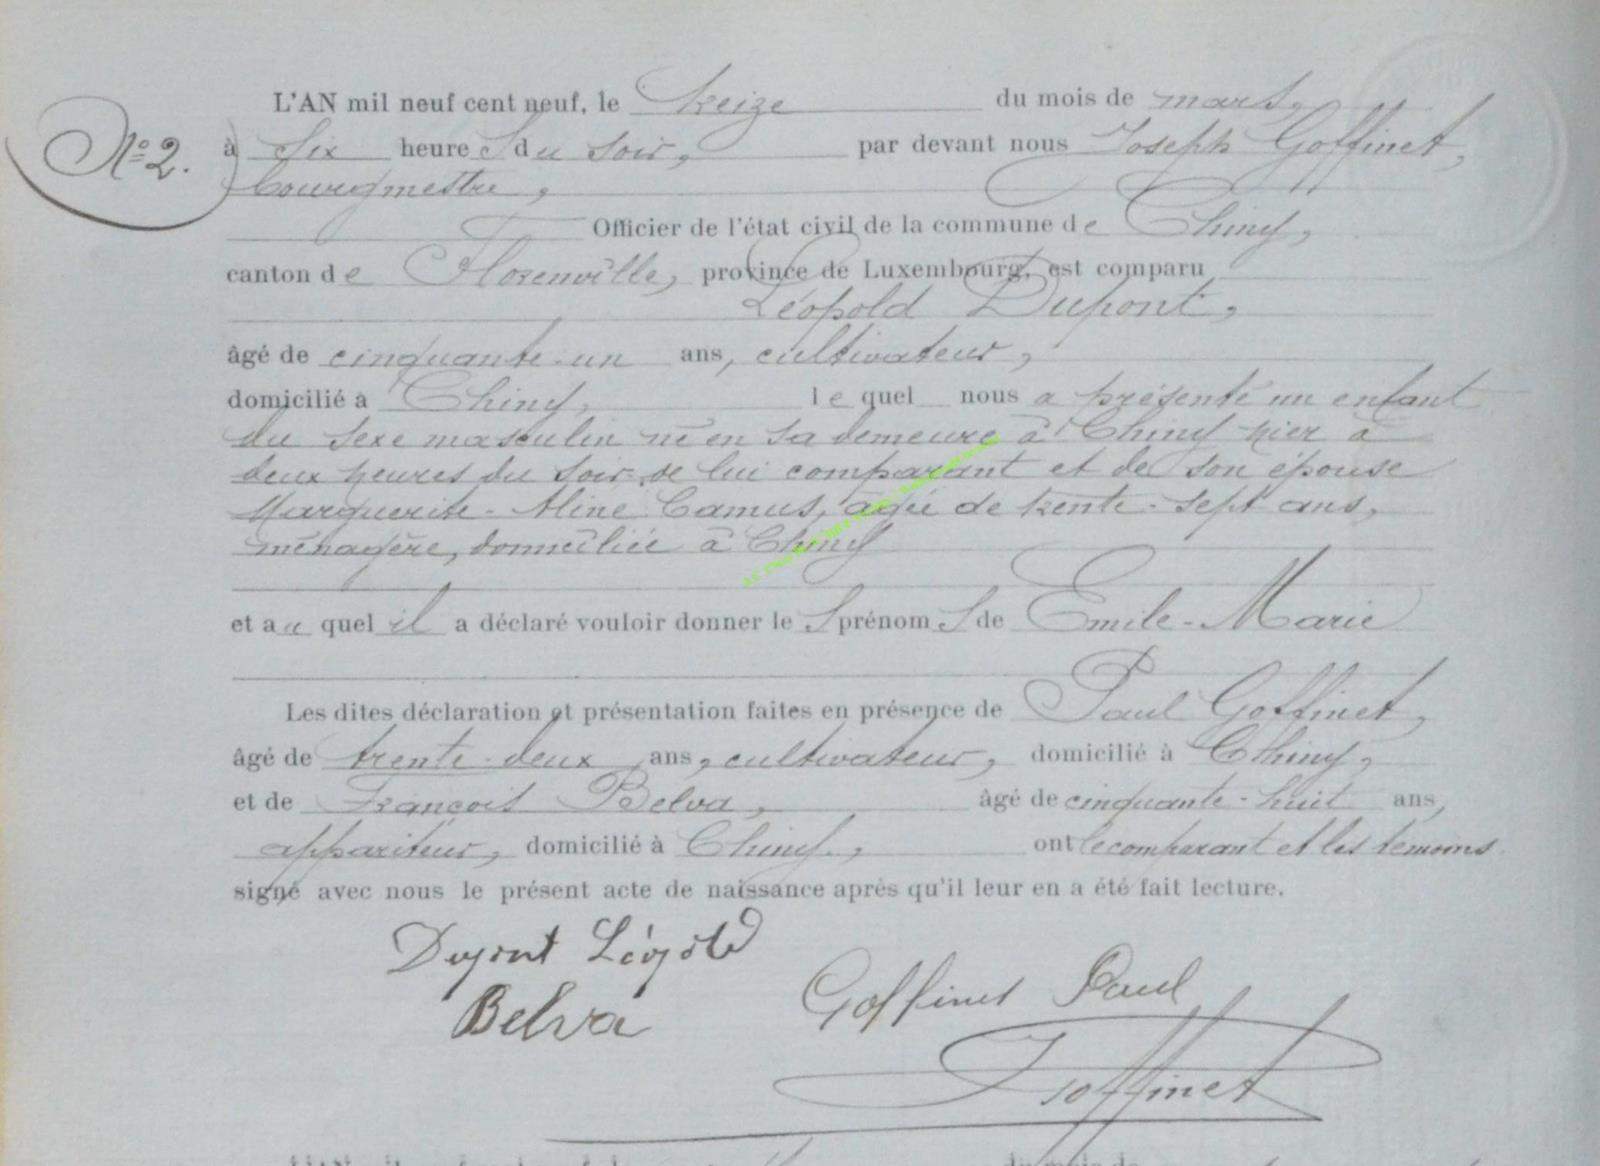 L'AN mil neuf cent neuf, le treize du mois de mars,
N° 2. à six heures du soir, par devant nous Joseph Goffinet,
bourgmestre,
Officier de l'état civil de la commune de Chiny,
canton de Florenville, province de Luxembourg, est comparu
Léopold Dupont,
âgé de cinquante-un ans, cultivateur,
domicilié à Chiny, lequel nous a présenté un enfant
du sexe masculin né en sa demeure à Chiny hier à
deux heures du soir, de lui comparant et de son épouse
Marguerite-Aline Camus, âgée de trente-sept ans,
ménagère, domiciliée à Chiny
et au quel il a déclaré vouloir donner les prénoms de Emile-Marie
Les dites déclaration et présentation faites en présence de Paul Goffinet,
âgé de trente-deux ans, cultivateur, domicilié à Chiny,
et de François Belva, âgé de cinquante-huit ans,
appariteur, domicilié à Chiny, ont le comparant et les témoins
signé avec nous le présent acte de naissance après qu'il leur en a été fait lecture.
Dupont Léopold
Goffinet Paul
Belva
J Goffinet